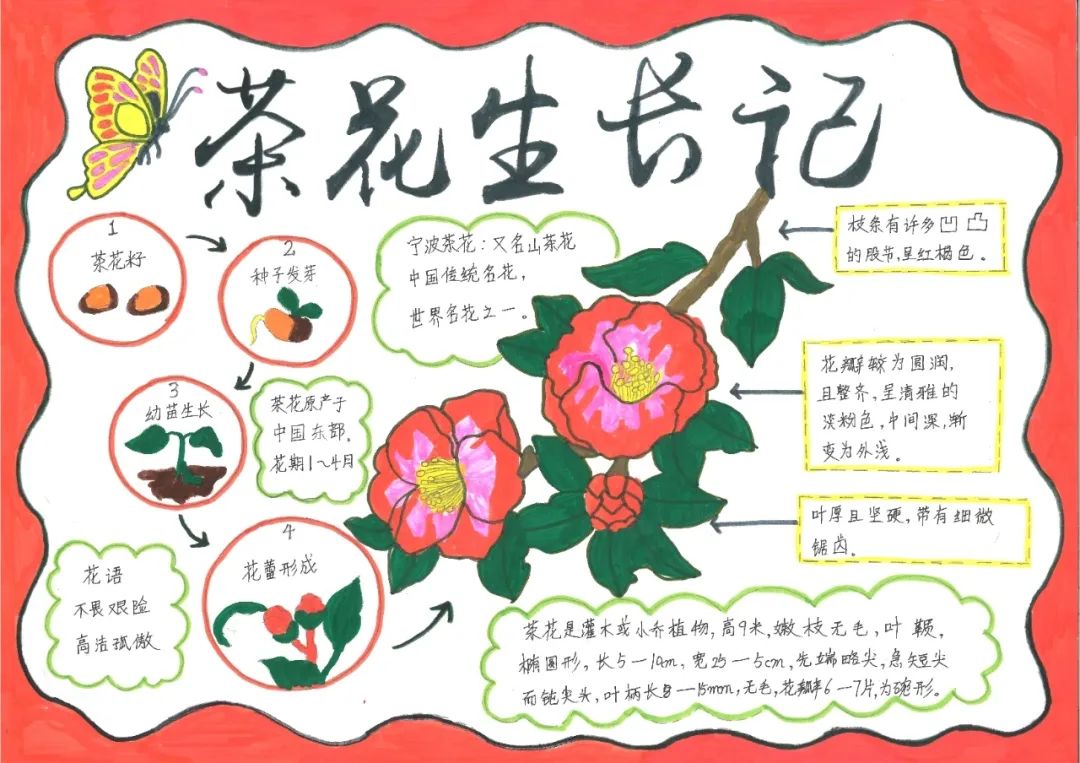 茶花生长记
1
茶花籽
2
种子发芽
3
幼苗生长
4
花蕾形成
宁波茶花：又名山茶花
中国传统名花，
世界名花之一。
茶花原产于
中国东部，
花期1~4月
花语
不畏艰险
高洁孤傲
枝条有许多凹凸
的股节，呈红褐色。
花瓣较为圆润，
且整齐，呈清雅的
淡粉色，中间深，渐
变为外浅。
叶厚且坚硬，带有细微
锯齿。
茶花是灌木或小乔植物，高9米，嫩枝无毛，叶
椭圆形，长5—10cm，宽25—5cm，先端略尖，急短尖
而钝尖头，叶柄长8—15mm，无毛，花瓣6—7片，为碗形。